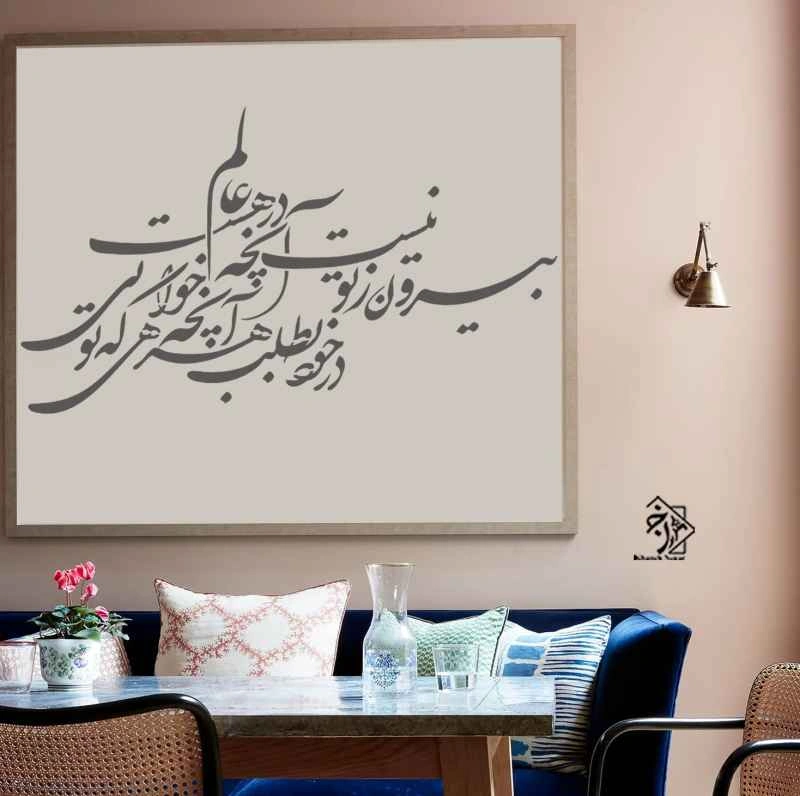 بیرون ز تو نیست آنچه در عالم هست
در خود بطلب هر آنچه خواهی که تویی
Khaneh Naraj